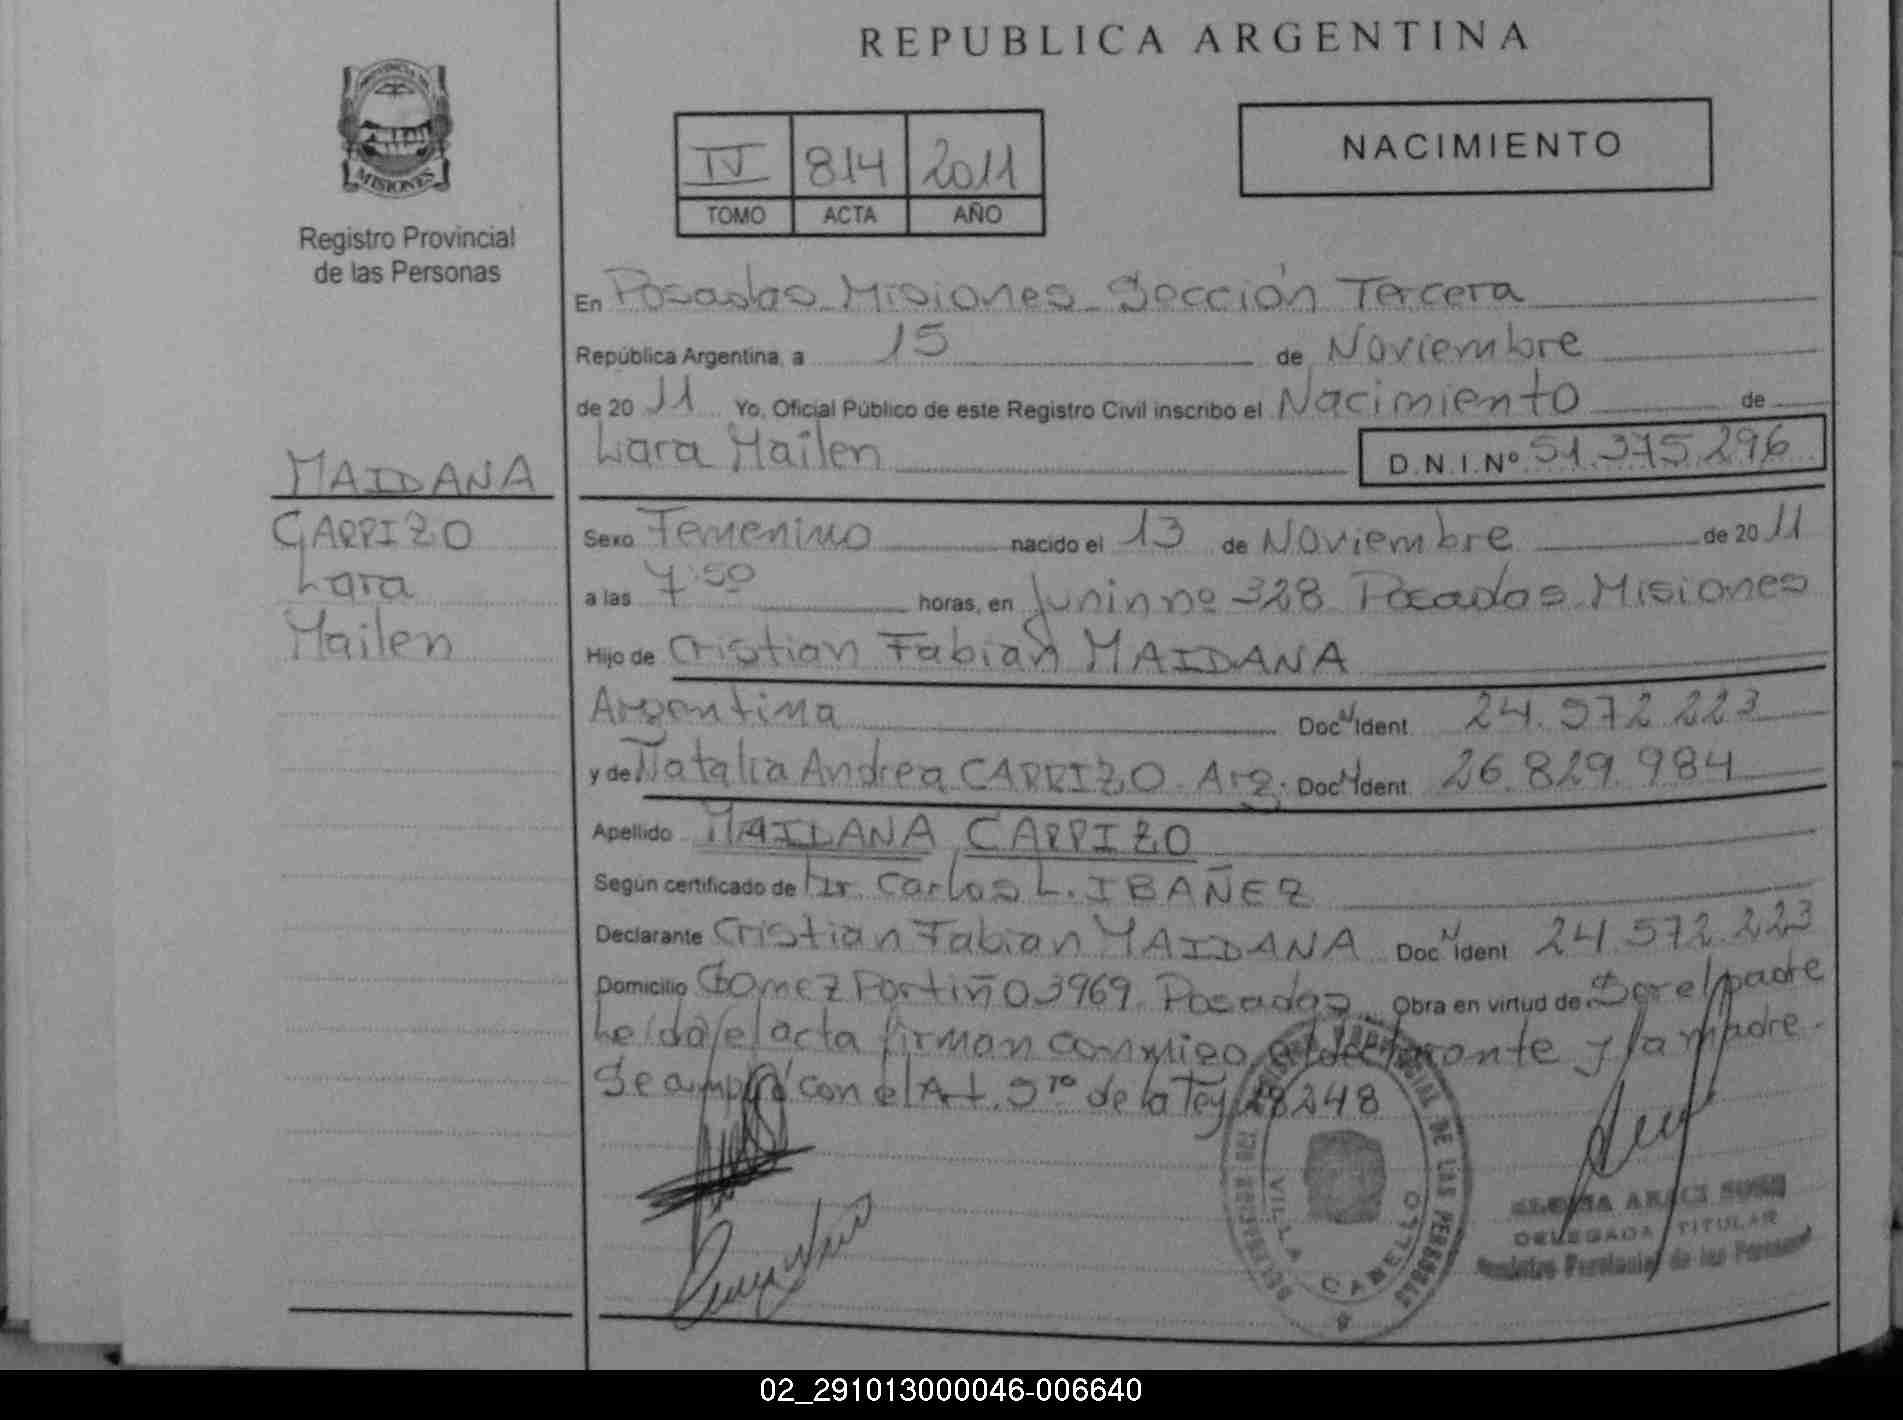 REPUBLICA ARGENTINA
PROVINCIA DE
MISIONES
Registro Provincial
de las Personas
IV 814 2011
TOMO ACTA AÑO
NACIMIENTO
En Posadas Misiones Sección Tercera
República Argentina, a 15 de Noviembre
de 2011 Yo, Oficial Público de este Registro Civil inscribo el Nacimiento de
Lara Mailen D.N.I.Nº 51.375.296
MAIDANA
CARRIZO
Lara
Mailen
Sexo Femenino nacido el 13 de Noviembre de 2011
a las 7:50 horas, en Junin nº 328 Posadas Misiones
Hijo de Cristian Fabián MAIDANA
Argentina Doc N Ident 24.572.223
y de Natalia Andrea CARRIZO. Arg. Doc N Ident 26.829.984
Apellido MAIDANA CARRIZO
Según certificado de Dr. Carlos L. IBAÑEZ
Declarante Cristian Fabian MAIDANA Doc N Ident 24.572.223
Domicilio Gomez Portiño 3969 Posadas Obra en virtud de Ser el padre
Leída el acta firman conmigo el declarante y la madre.
Se con el Art. 5to de la Ley 18248
REGISTRO PROVINCIAL DE LAS PERSONAS
VILLA CABELLO
ARACI
DELEGADA TITULAR
Registro Provincial de las Personas
02_291013000046-006640